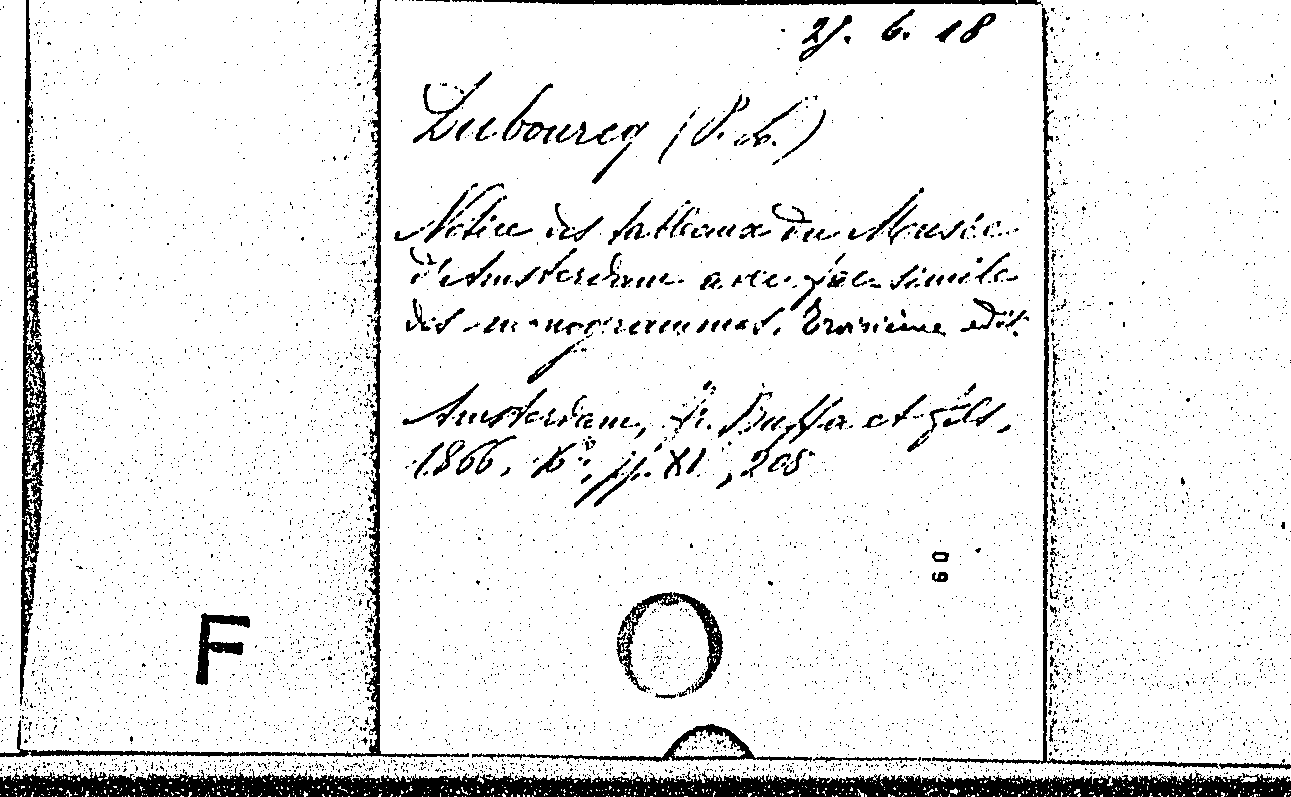 25. 6. 18
Dubourcq (P. L.)
Notice des tableaux du Musée
d'Amsterdam avec fac simile
des monogrammes. Troisième edit.
Amsterdam, Fr. Buffa et fils,
1866, 16°, pp. XI, 208
60
F